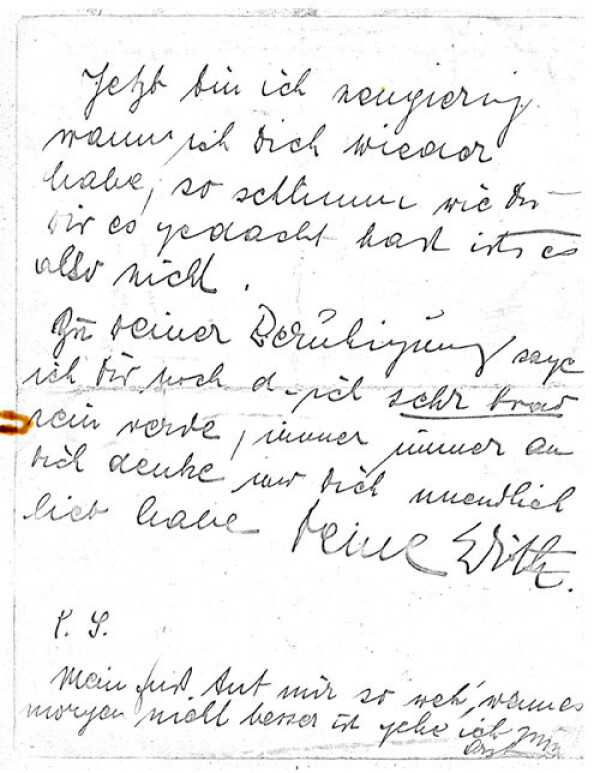 Jetzt bin ich neugierig
wann ich Dich wieder
habe, so schlimm wie Du
Dir es gedacht hast ist es
also nicht.
Zu Deiner Beruhigung sage
ich Dir noch d. ich sehr brav
sein werde, immer immer an
Dich denke und Dich unendlich
lieb habe Deine
P. S.
Mein tut mir so weh, wann es
morgen nicht besser ist gehe ich zum